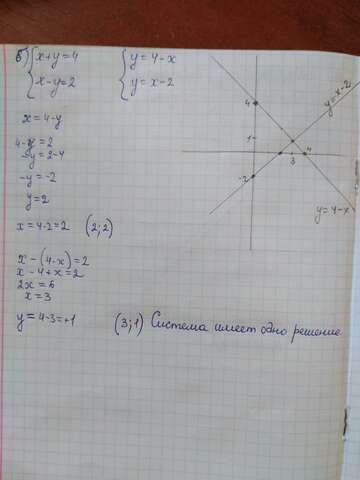 б) { x+y=4 { y=4-x
x-y=2 y=x-2
x=4-y
4-y=2
-y=2-4
-y=-2
y=2
x=4-2=2 (2;2)
x-(4-x)=2
x-4+x=2
2x=6
x=3
y=4-3=+1 (3;1) Система имеет одно решение
y=x-2
4
1
3 4
-2
y=4-x